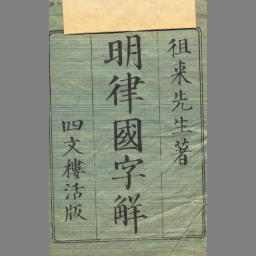 徂来先生著
明律國字解
四文樓活版